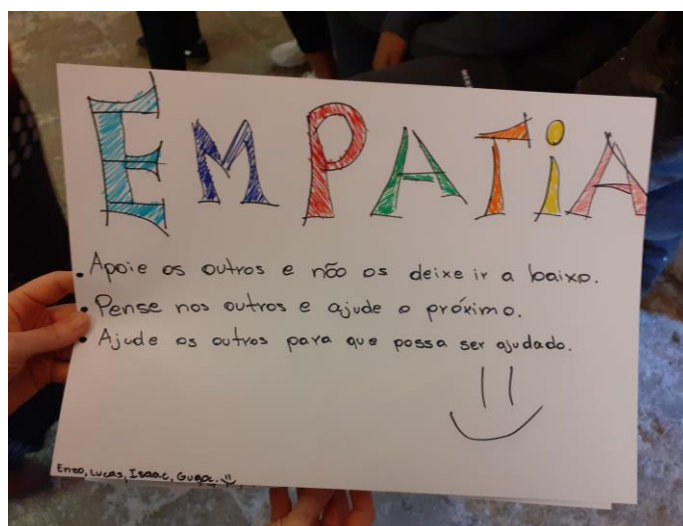 EMPATiA
• Apoie os outros e não os deixe ir a baixo.
• Pense nos outros e ajude o próximo.
• Ajude os outros para que possa ser ajudado.
Enzo, Lucas, Isaac, Guga.